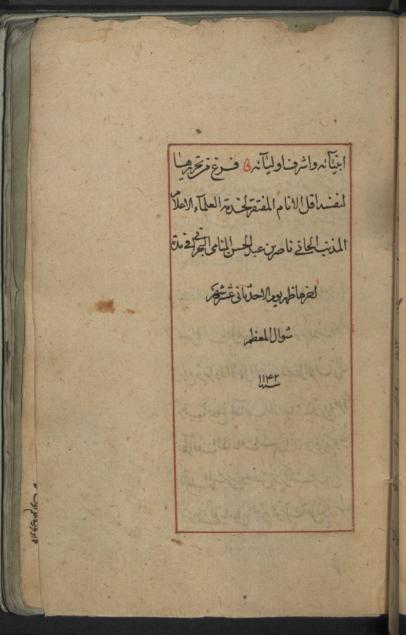 انبيآئه واشرف اوليآئه فرغ من تحريرها
لنفسه اقل الانام المفتقر لخدمة العلمآء الاعلام
المذنب الجاني ناصر بن عبد الحسن المنامي البحراني في مدة
اخرها ظهر يوم الاحد ثاني عشر شهر
شوال المعظم
سنة ١١٤٢